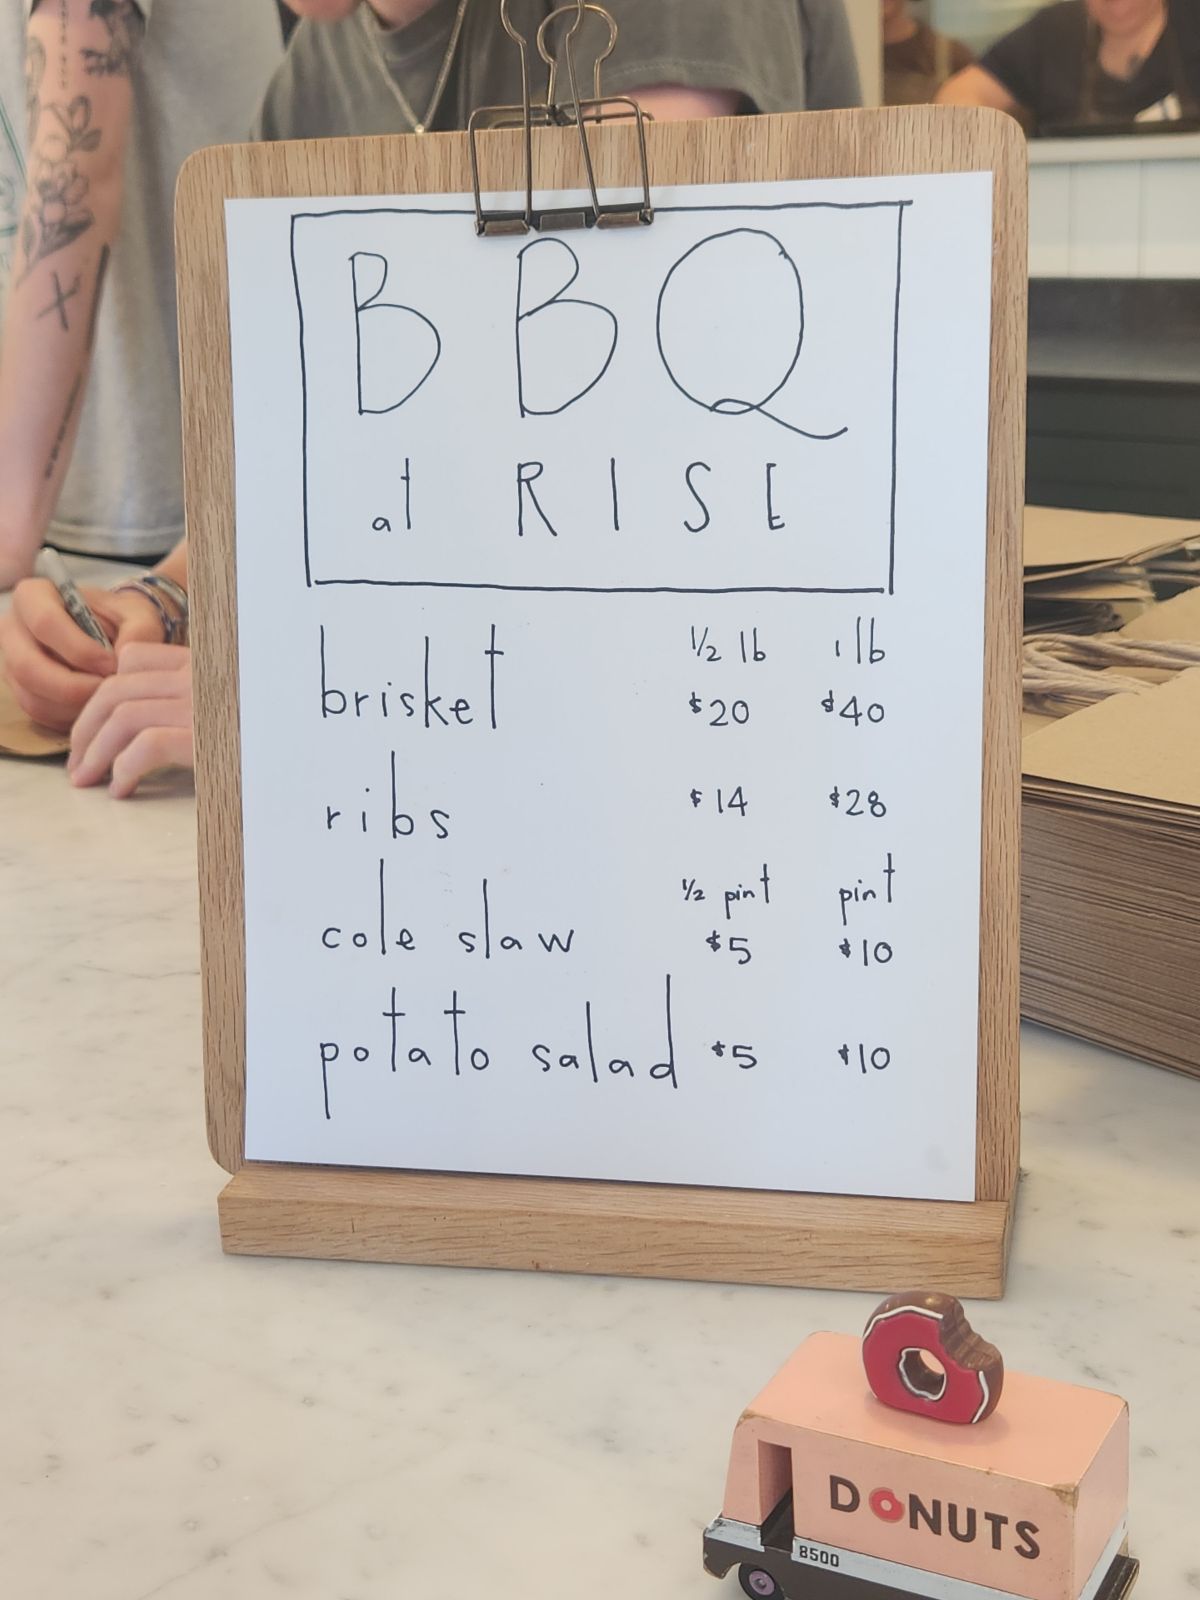 BBQ
at RISE
½ lb 1 lb
brisket $20 $40
ribs $14 $28
½ pint pint
cole slaw $5 $10
potato salad $5 $10
DONUTS
8500